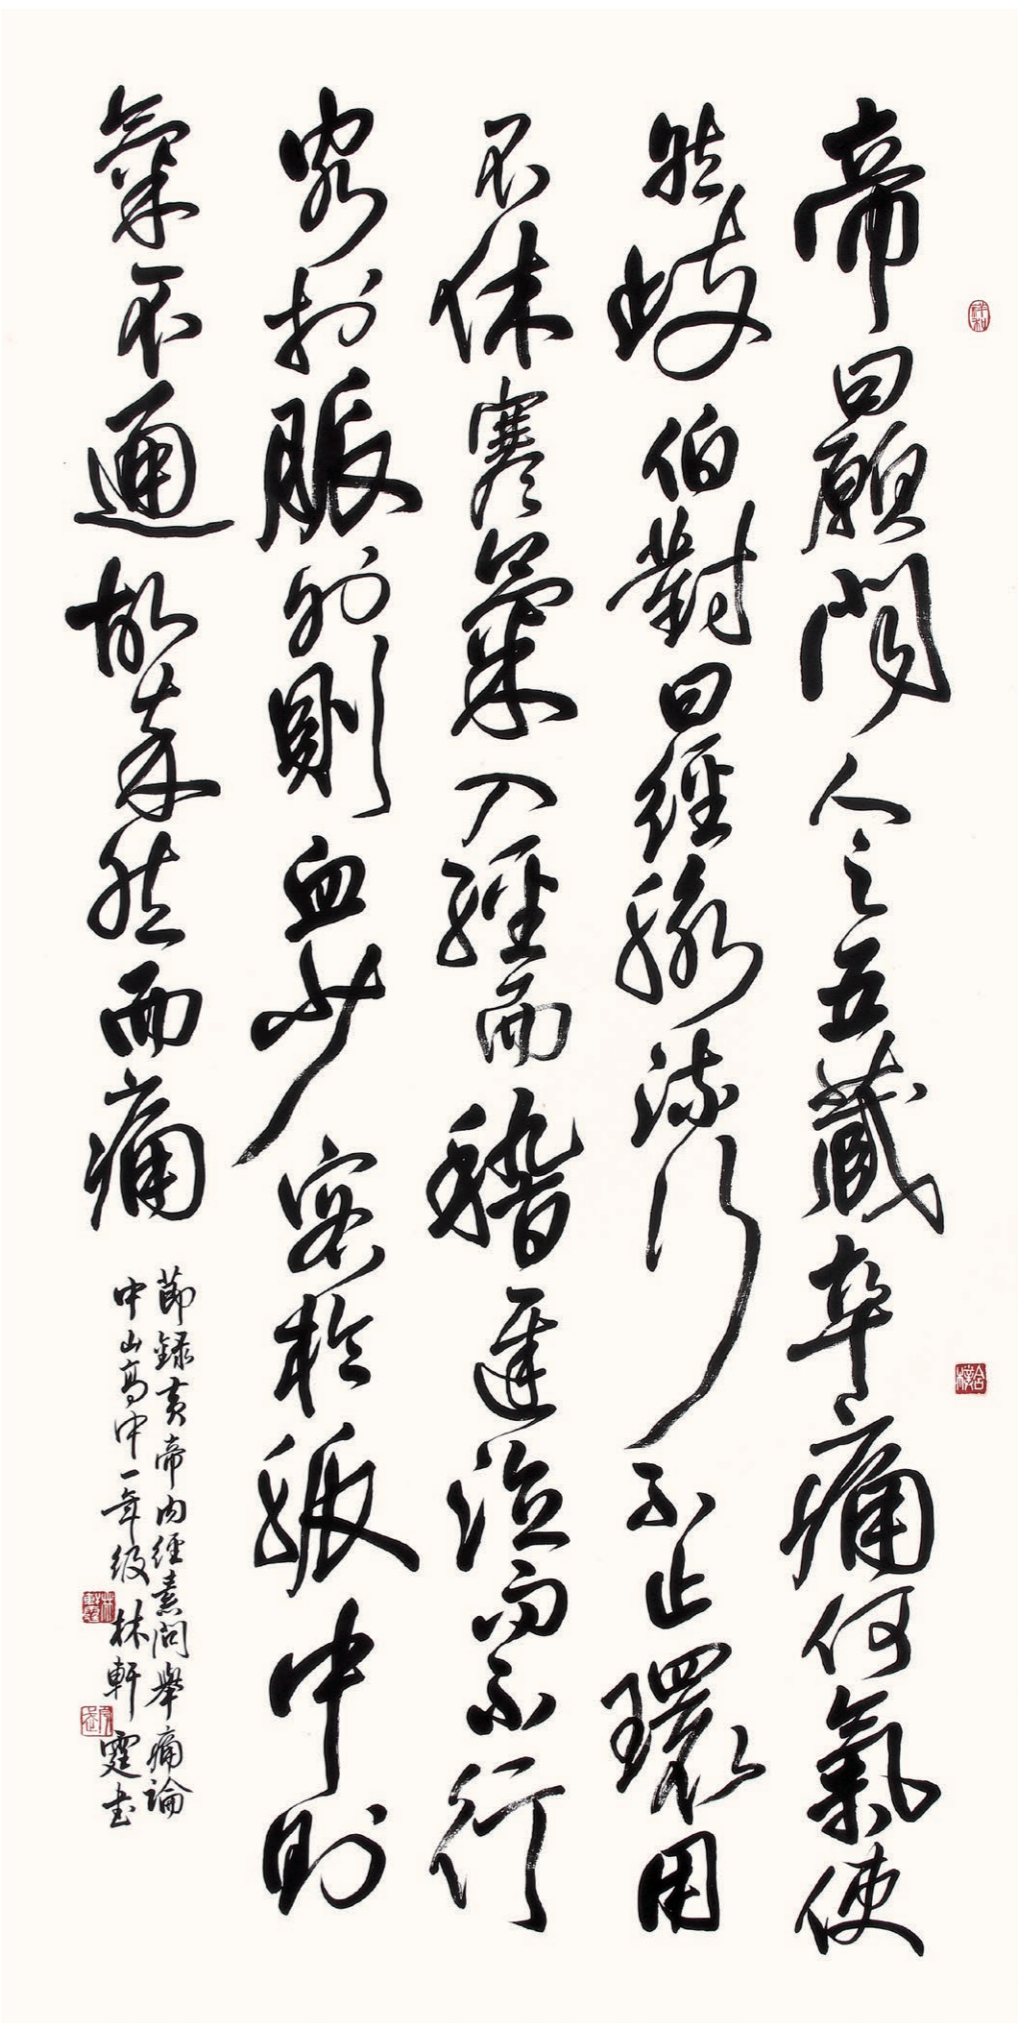 帝曰願聞人之五藏卒痛何氣使
然歧伯對曰經脈流行不止環周
不休寒氣入經而稽遲泣而不行
客於脈外則血少客於脈中則
氣不通故卒然而痛
節錄黃帝內經素問舉痛論
中山高中一年級林軒霆書
祥和